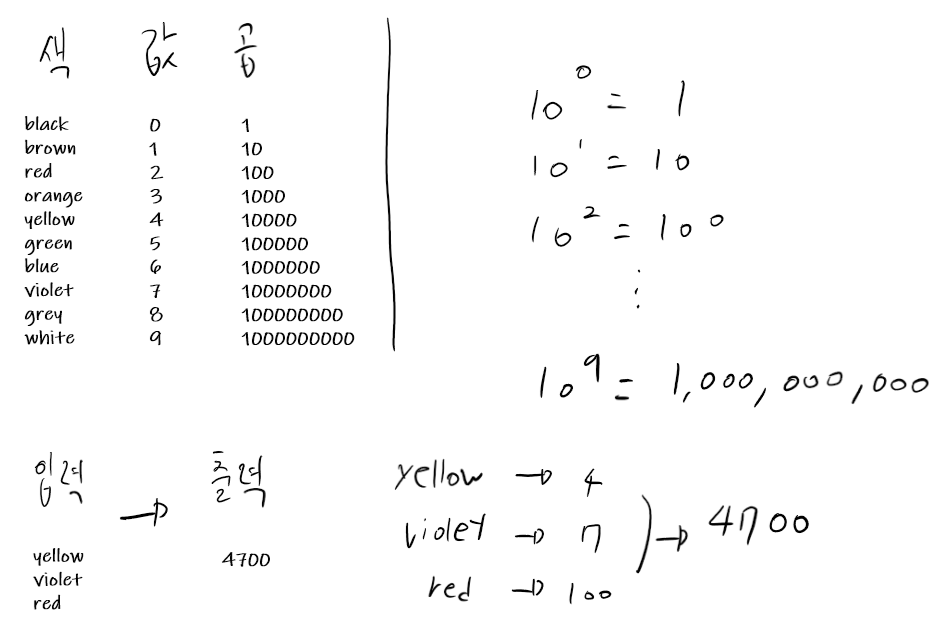 색 값 곱
black 0 1
brown 1 10
red 2 100
orange 3 1000
yellow 4 10000
green 5 100000
blue 6 1000000
violet 7 10000000
grey 8 100000000
white 9 1000000000
10⁰ = 1
10¹ = 10
10² = 100
⋮
10⁹ = 1,000,000,000
입력 → 출력
yellow 4700
violet
red
yellow → 4
violet → 7
red → 100
) → 4700